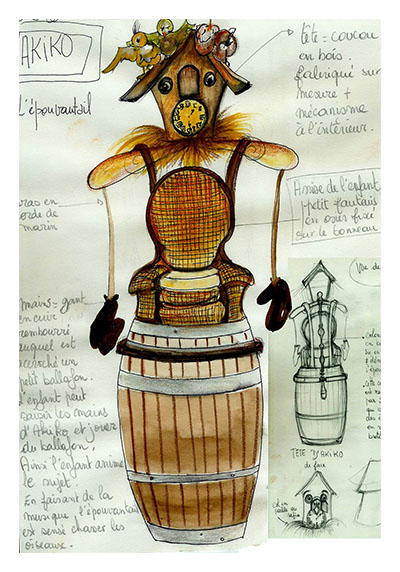 AKIKO
L'épouvantail
tête = coucou
en bois.
fabriqué sur
mesure +
mécanisme
à l'intérieur.
bras en
corde de
marin
Assise de l'enfant
petit fauteuil
en osier fixé
sur le tonneau
mains = gant
en cuir
rembourré
auquel est
accroché un
petit ballafon.
L'enfant peut
saisir les mains
d'Akiko et jouer
du ballafon,
Ainsi l'enfant anime
le sujet.
En faisant de la
musique, l'épouvantail
est sensé chasser les
oiseaux.
Vue de
TETE D'AKIKO
de face